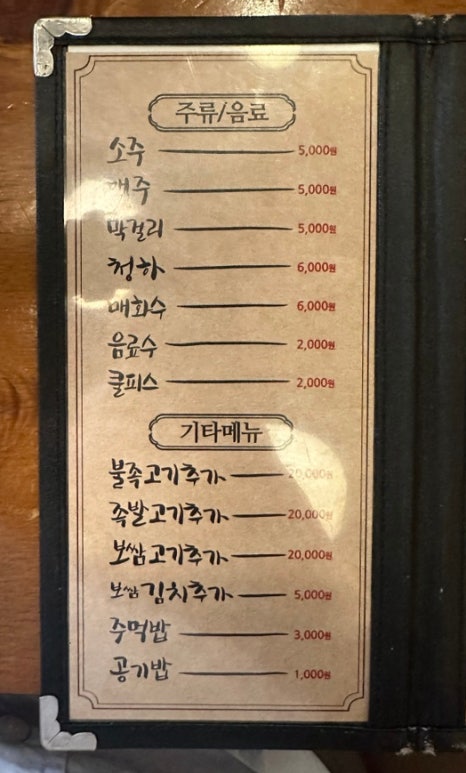 주류/음료
소주 5,000원
맥주 5,000원
막걸리 5,000원
청하 6,000원
매화수 6,000원
음료수 2,000원
쿨피스 2,000원
기타메뉴
불족고기추가 20,000원
족발고기추가 20,000원
보쌈고기추가 20,000원
보쌈김치추가 5,000원
주먹밥 3,000원
공기밥 1,000원